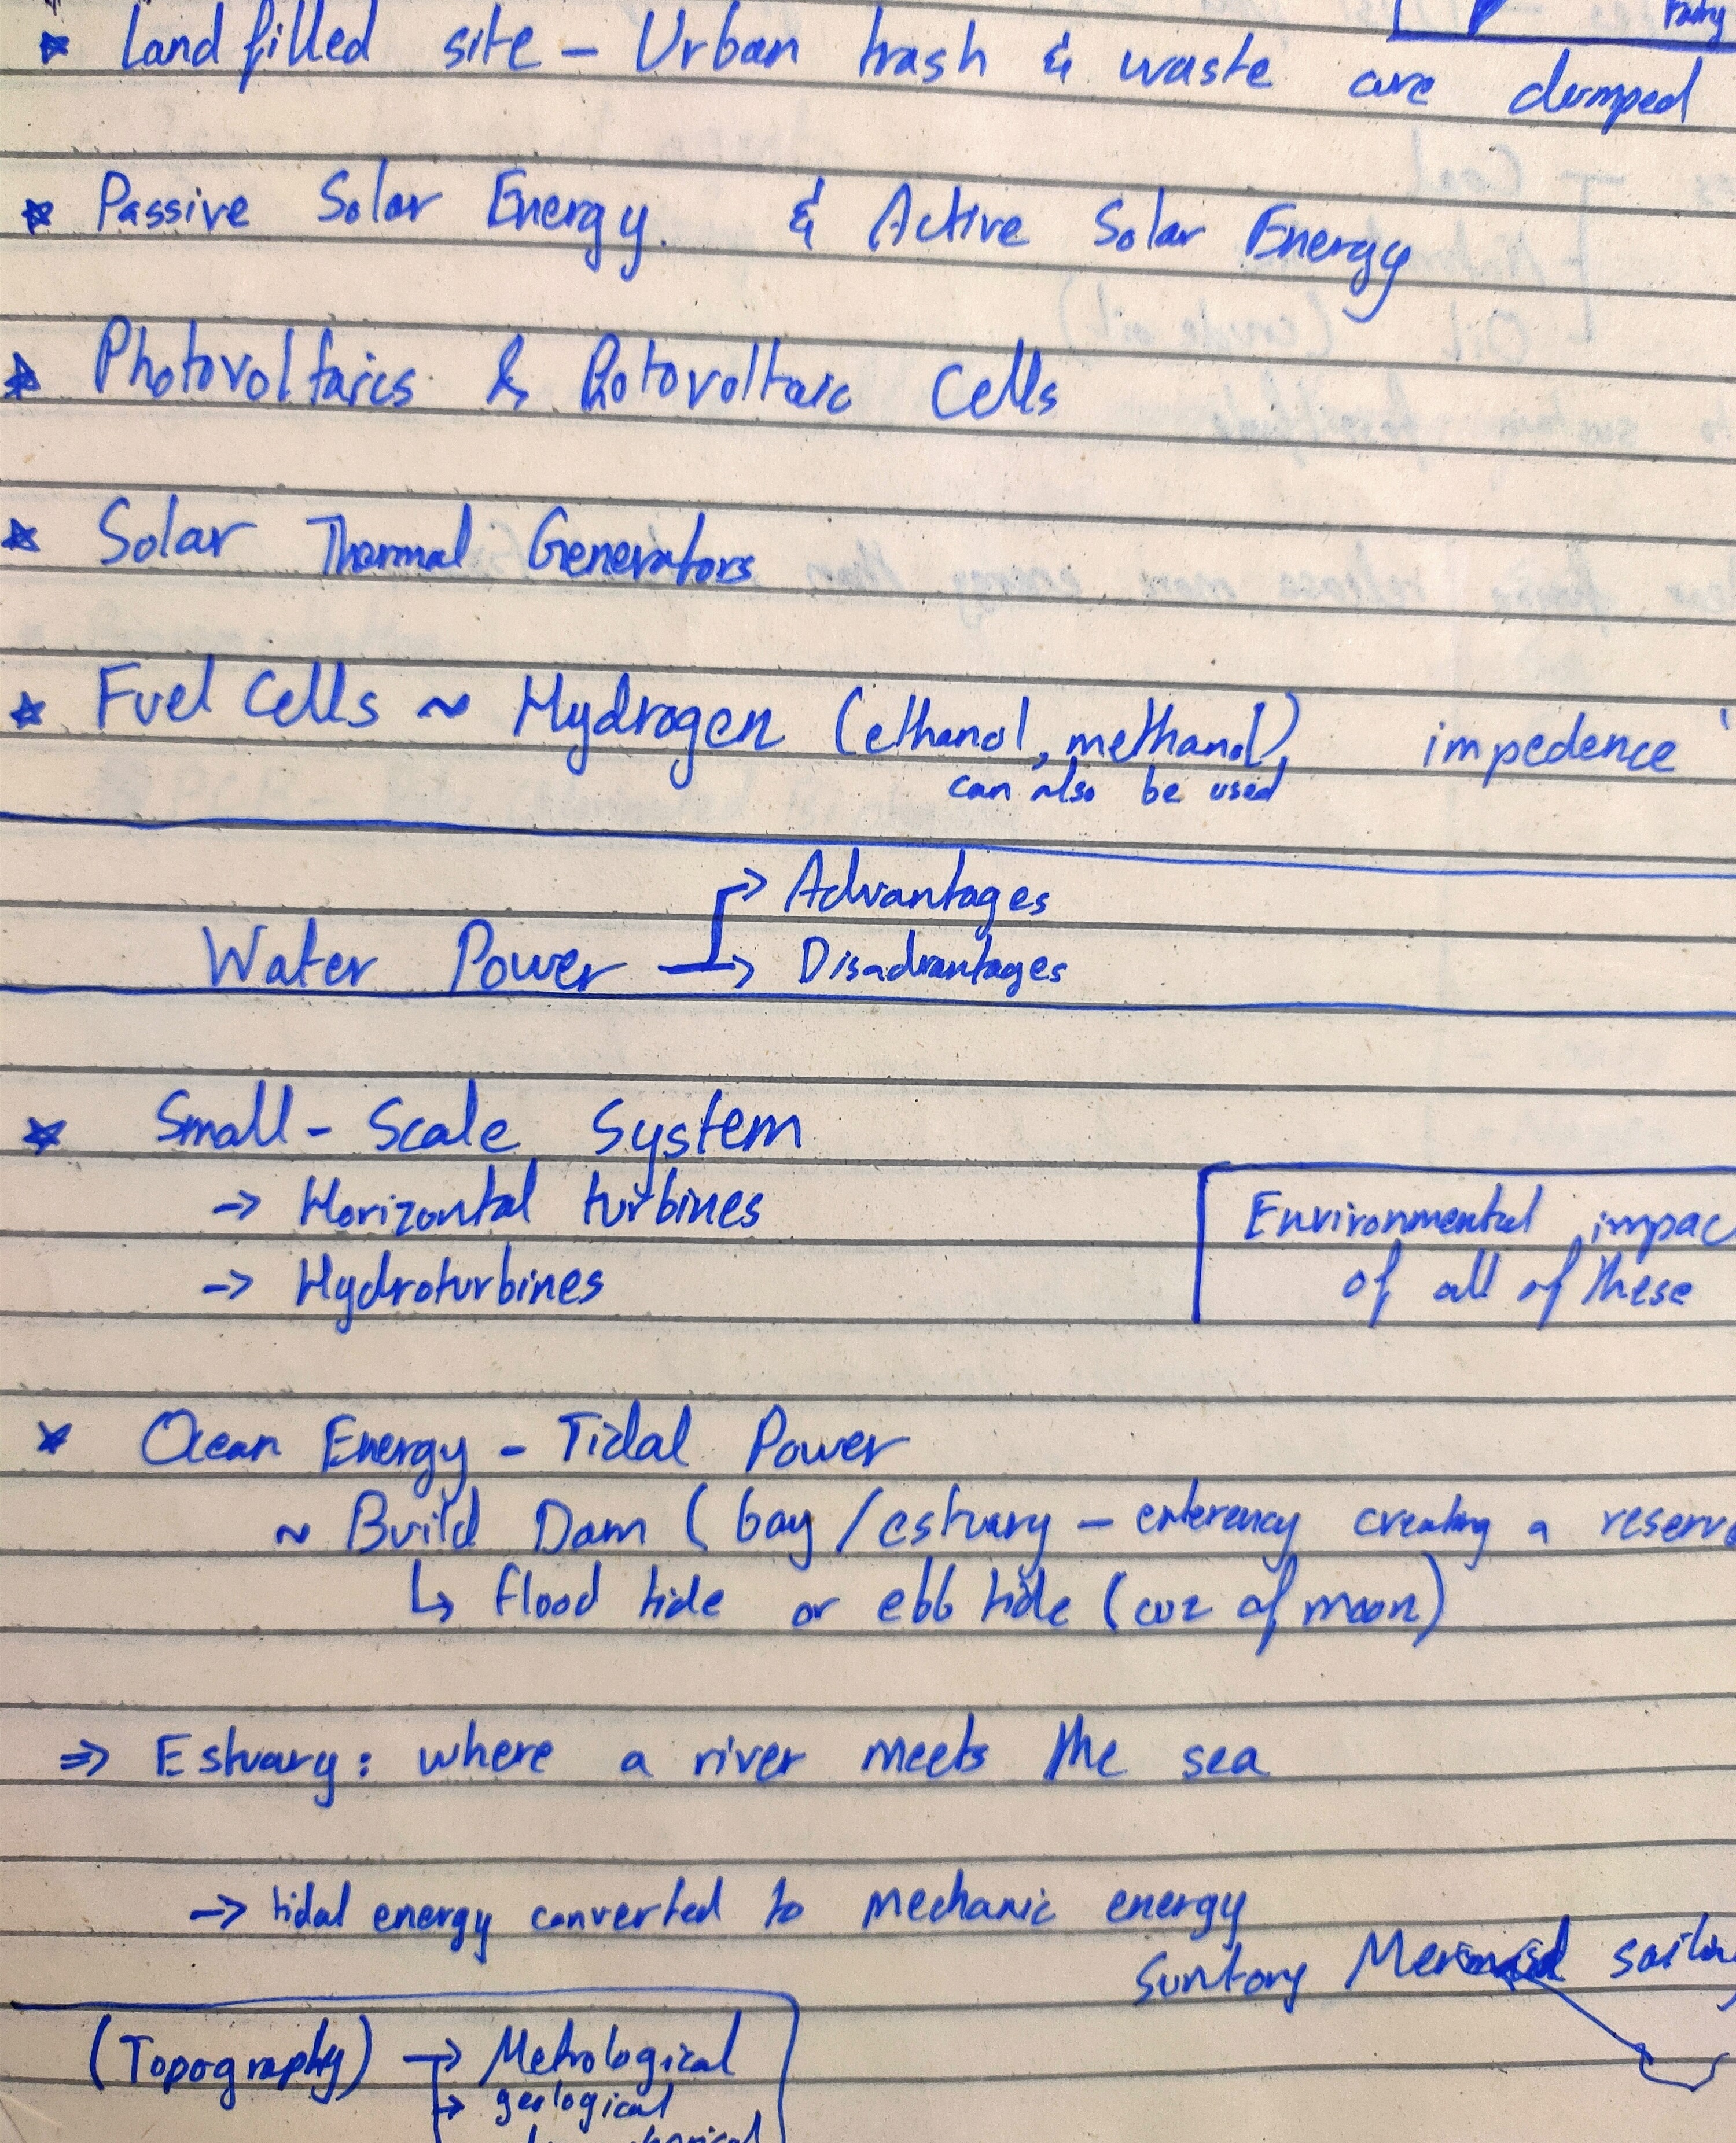 * Landfilled site – Urban trash & waste are dumped
* Passive Solar Energy. & Active Solar Energy
* Photovoltaics & Potovoltaic Cells
* Solar Thermal Generators
* Fuel Cells ~ Hydrogen (ethanol, methanol) impedence
can also be used
→ Advantages
Water Power → Disadvantages
* Small-Scale System
→ Horizontal turbines
→ Hydroturbines
Environmental impac
of all of these
* Ocean Energy – Tidal Power
~ Build Dam (bay/estuary – enterency creating a reserv
↳ flood tide or ebb tide (cuz of moon)
⇒ Estuary: where a river meets the sea
→ tidal energy converted to mechanic energy
Suntory Mermaid sailin
(Topography) → Metrological
→ geological